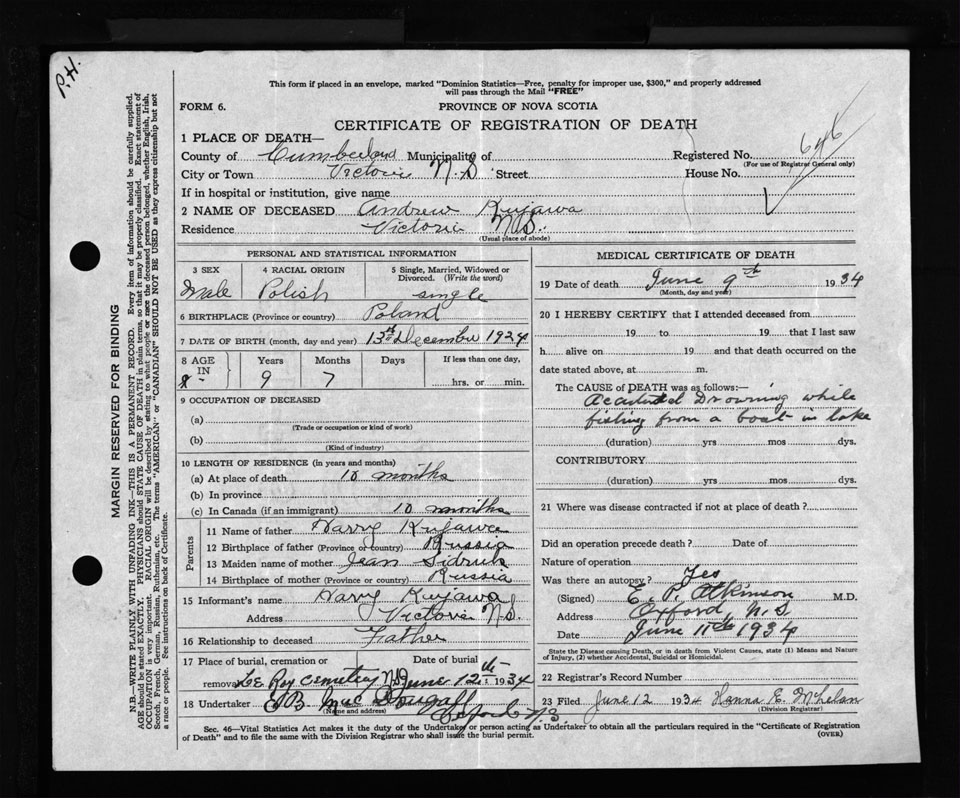 P.H.
This form if placed in an envelope, marked "Dominion Statistics—Free, penalty for improper use, $300," and properly addressed
will pass through the Mail "FREE"
FORM 6.
PROVINCE OF NOVA SCOTIA
CERTIFICATE OF REGISTRATION OF DEATH
1 PLACE OF DEATH—
County of Cumberland Municipality of
Registered No.
(For use of Registrar General only)
City or Town Victoria N.S. Street House No.
If in hospital or institution, give name
2 NAME OF DECEASED Andrew Kujawa
Residence Victoria N.S.
(Usual place of abode)
PERSONAL AND STATISTICAL INFORMATION
3 SEX 4 RACIAL ORIGIN 5 Single, Married, Widowed or
Divorced. (Write the word)
Male Polish single
6 BIRTHPLACE (Province or country) Poland
7 DATE OF BIRTH (month, day and year) 13th December 1924
8 AGE Years Months Days If less than one day,
IN 9 7 hrs. or min.
9 OCCUPATION OF DECEASED
(a)
(Trade or occupation or kind of work)
(b)
(Kind of industry)
10 LENGTH OF RESIDENCE (in years and months)
(a) At place of death 10 months
(b) In province
(c) In Canada (if an immigrant) 10 months
Parents
11 Name of father Harry Kujawa
12 Birthplace of father (Province or country) Russia
13 Maiden name of mother Jean Sidruk
14 Birthplace of mother (Province or country) Russia
15 Informant's name Harry Kujawa
Address Victoria N.S.
16 Relationship to deceased Father
17 Place of burial, cremation or Date of burial
removal Le Roy Cemetery N.S. June 12th 1934
18 Undertaker E B MacDougall
(Name and address) Oxford N.S.
MEDICAL CERTIFICATE OF DEATH
19 Date of death June 9th 1934
(Month, day and year)
20 I HEREBY CERTIFY that I attended deceased from
19 to 19 that I last saw
h alive on 19 and that death occurred on the
date stated above, at m.
The CAUSE of DEATH was as follows:—
Accidental Drowning while
fishing from a boat in lake
(duration) yrs mos dys.
CONTRIBUTORY
(duration) yrs mos dys.
21 Where was disease contracted if not at place of death?
Did an operation precede death? Date of
Nature of operation
Was there an autopsy? Yes
(Signed) E. P. Atkinson M.D.
Address Oxford, N.S.
Date June 11th 1934
State the Disease causing Death, or in death from Violent Causes, state (1) Means and Nature
of Injury, (2) whether Accidental, Suicidal or Homicidal.
22 Registrar's Record Number
23 Filed June 12 1934
(Division Registrar)
Sec. 46—Vital Statistics Act makes it the duty of the Undertaker or person acting as Undertaker to obtain all the particulars required in the "Certificate of Registration
of Death" and to file the same with the Division Registrar who shall issue the burial permit.
(OVER)
MARGIN RESERVED FOR BINDING
N.B.—WRITE PLAINLY WITH UNFADING INK—THIS IS A PERMANENT RECORD. Every item of information should be carefully supplied.
AGE should be stated EXACTLY. PHYSICIANS should STATE CAUSE OF DEATH in plain terms, so that it may be properly classified. Exact statement of
OCCUPATION is very important. RACIAL ORIGIN will be described by stating to what people or race the deceased person belonged, whether English, Irish,
Scotch, French, German, Russian, Ruthenian, etc. The terms "AMERICAN" or "CANADIAN" SHOULD NOT BE USED as they express citizenship but not
a race or people. See instructions on back of Certificate.